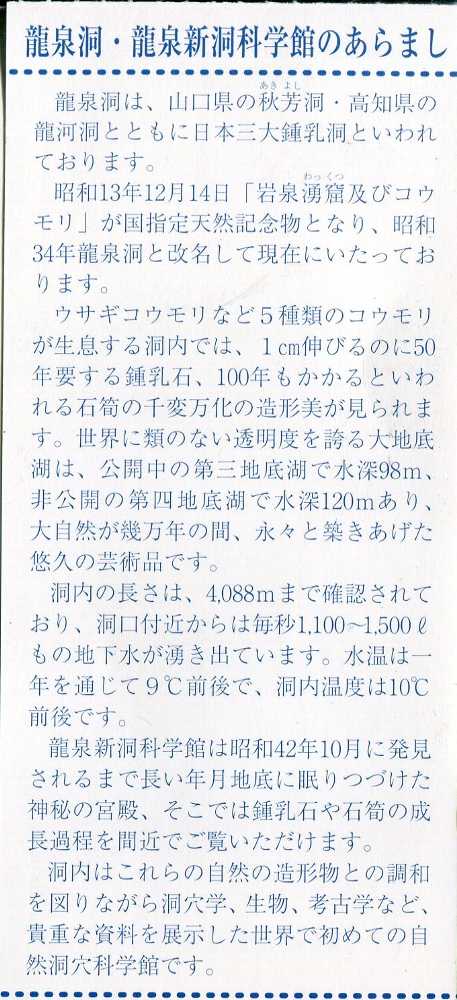 龍泉洞・龍泉新洞科学館のあらまし
龍泉洞は、山口県の秋芳洞・高知県の
龍河洞とともに日本三大鍾乳洞といわれ
ております。
昭和13年12月14日「岩泉湧窟及びコウ
モリ」が国指定天然記念物となり、昭和
34年龍泉洞と改名して現在にいたってお
ります。
ウサギコウモリなど5種類のコウモリ
が生息する洞内では、1㎝伸びるのに50
年要する鍾乳石、100年もかかるといわ
れる石筍の千変万化の造形美が見られま
す。世界に類のない透明度を誇る大地底
湖は、公開中の第三地底湖で水深98m、
非公開の第四地底湖で水深120mあり、
大自然が幾万年の間、永々と築きあげた
悠久の芸術品です。
洞内の長さは、4,088mまで確認されて
おり、洞口付近からは毎秒1,100〜1,500ℓ
もの地下水が湧き出ています。水温は一
年を通じて9℃前後で、洞内温度は10℃
前後です。
龍泉新洞科学館は昭和42年10月に発見
されるまで長い年月地底に眠りつづけた
神秘の宮殿、そこでは鍾乳石や石筍の成
長過程を間近でご覧いただけます。
洞内はこれらの自然の造形物との調和
を図りながら洞穴学、生物、考古学など、
貴重な資料を展示した世界で初めての自
然洞穴科学館です。